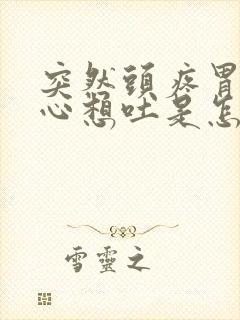 突然頭疼胃
心想吐是怎
雪靈之